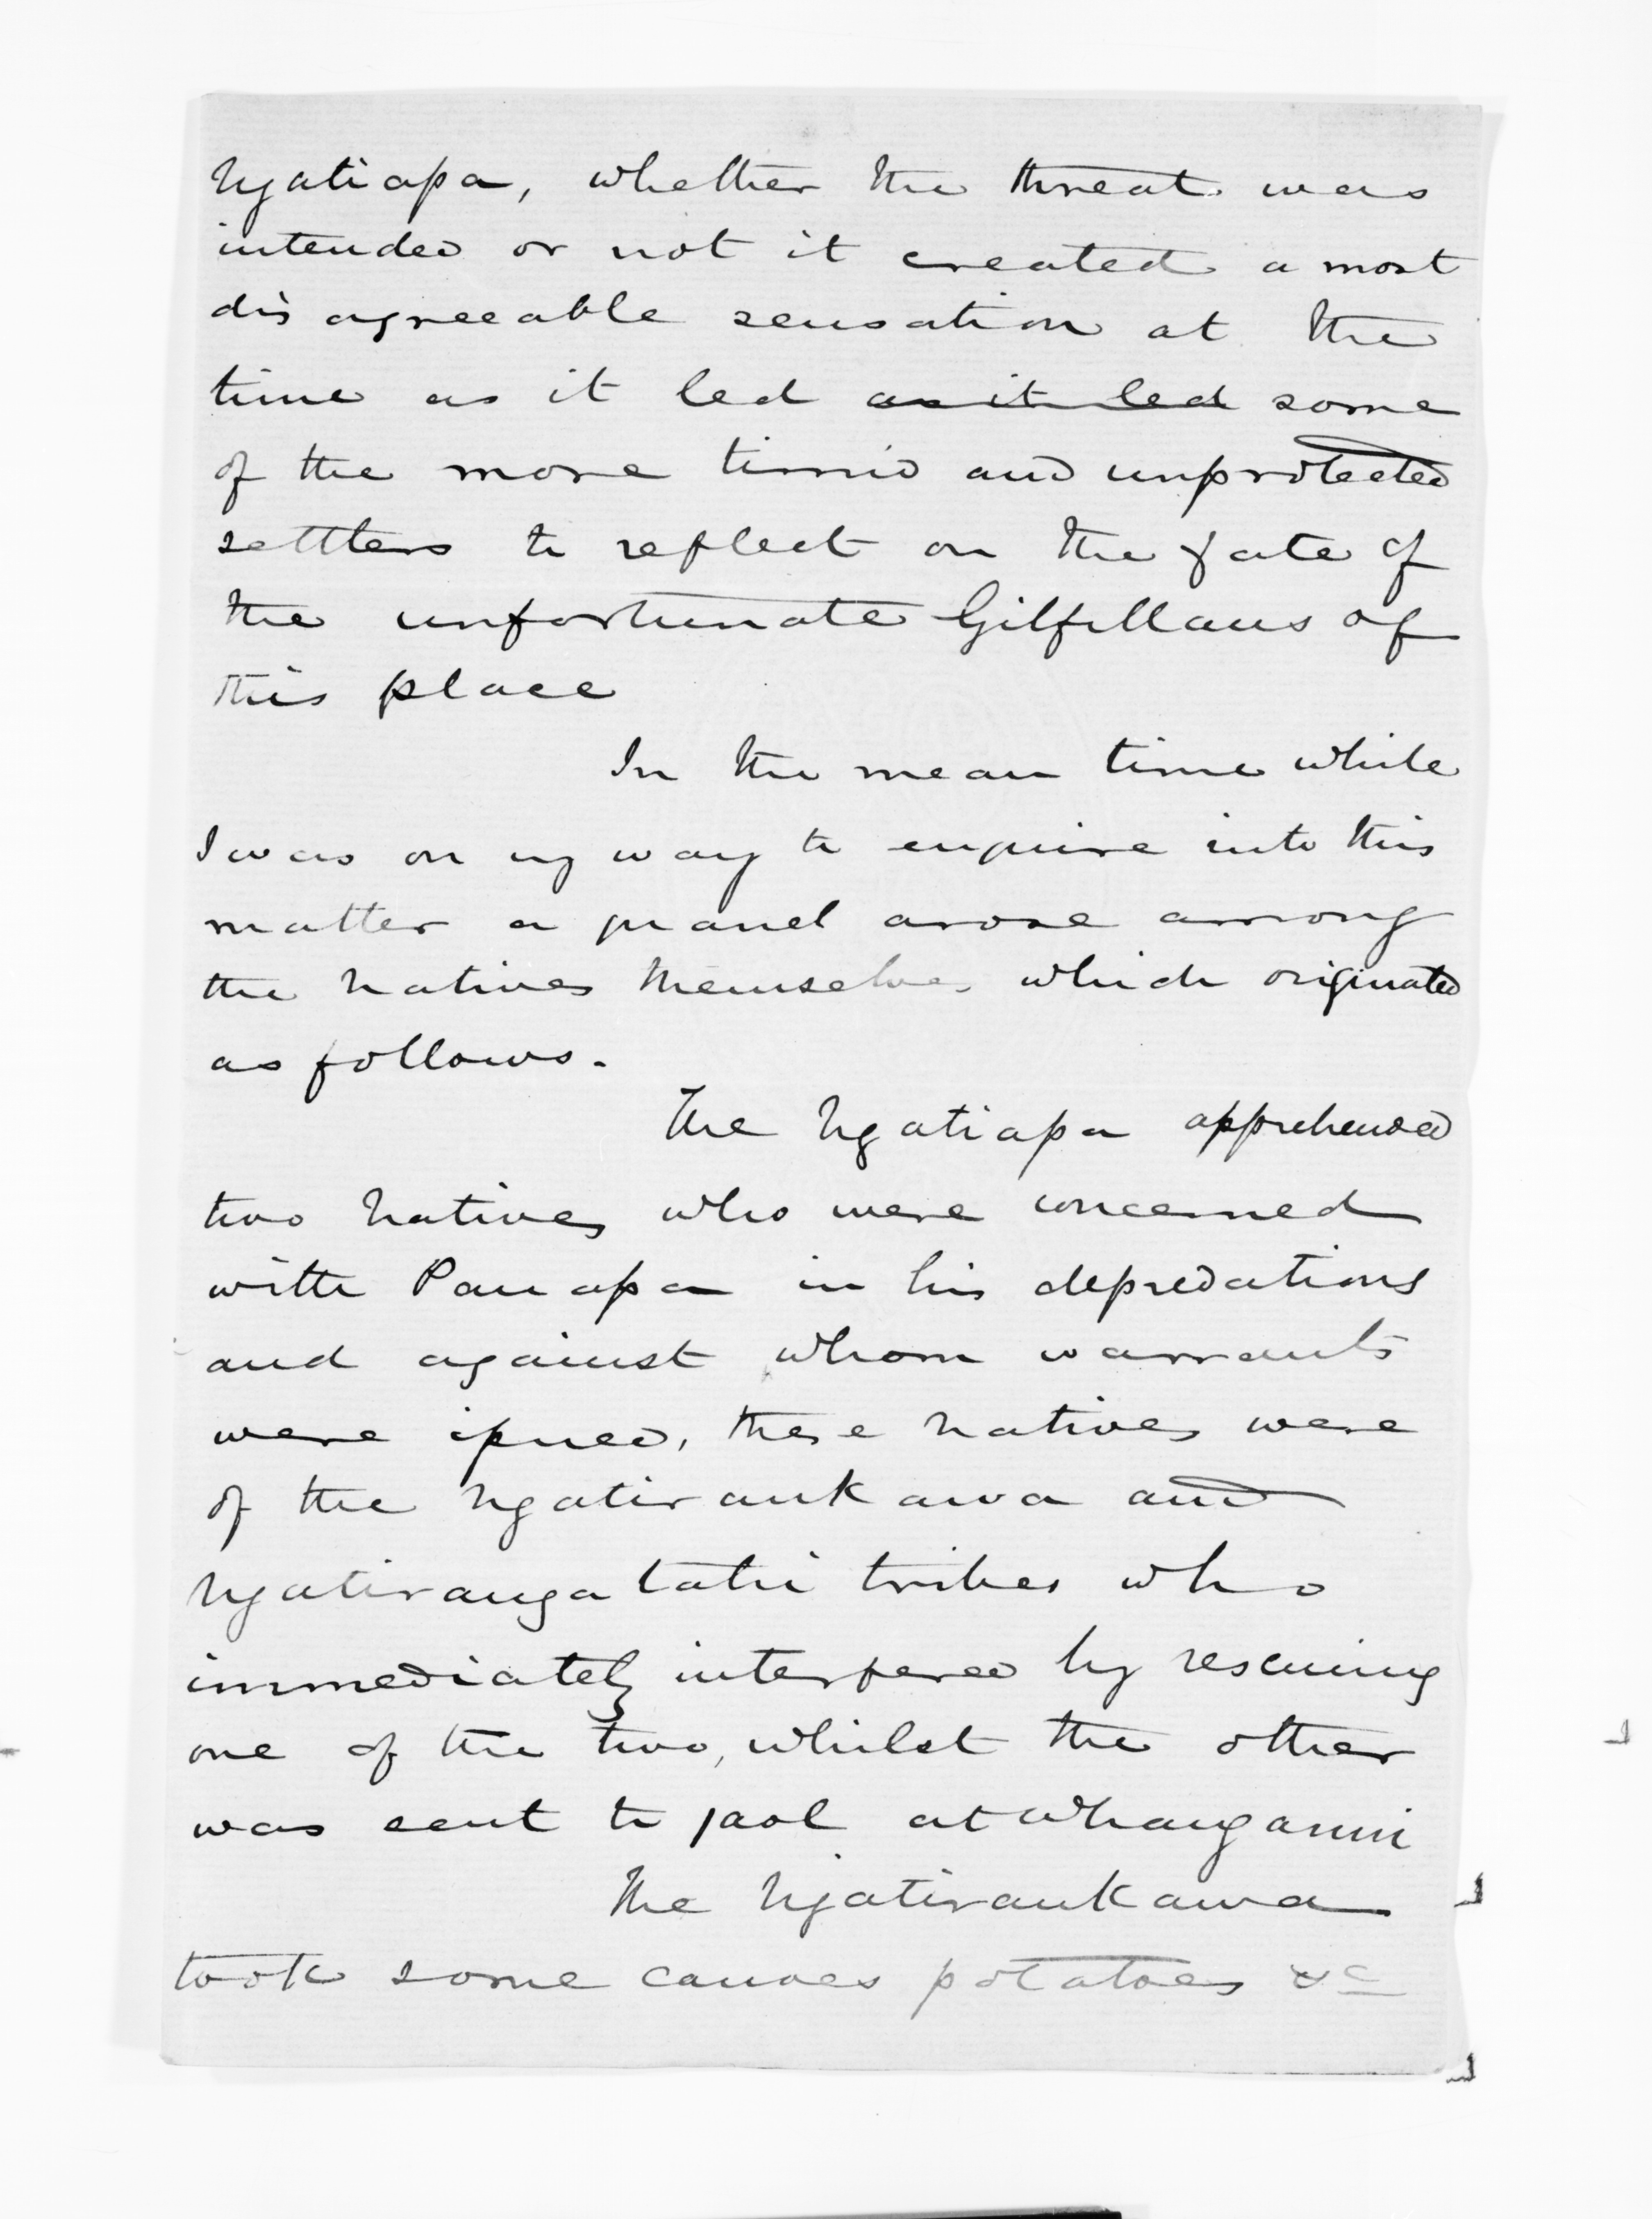 Ngatiapa, whether the threat was
intended or not it created a most
dis agreeable sensation at the
time as it led as it led some
of the more timid and unprotected
settlers to reflect on the fate of
the unfortunate Gilfillans of
this place
In the mean time while
I was on my way to enquire into this
matter a quarrel arose among
the Natives themselves which originated
as follows.
The Ngatiapa apprehended
two Natives who were concerned
with Panapa in his depredations
and against whom warrants
were issued, these Natives were
of the Ngatiraukawa and
Ngatirangatahi tribes who
immediately interfered by rescuing
one of the two, whilst the other
was sent to jaol at Whanganui
The Ngatiraukawa
took some canoes potatoes &c